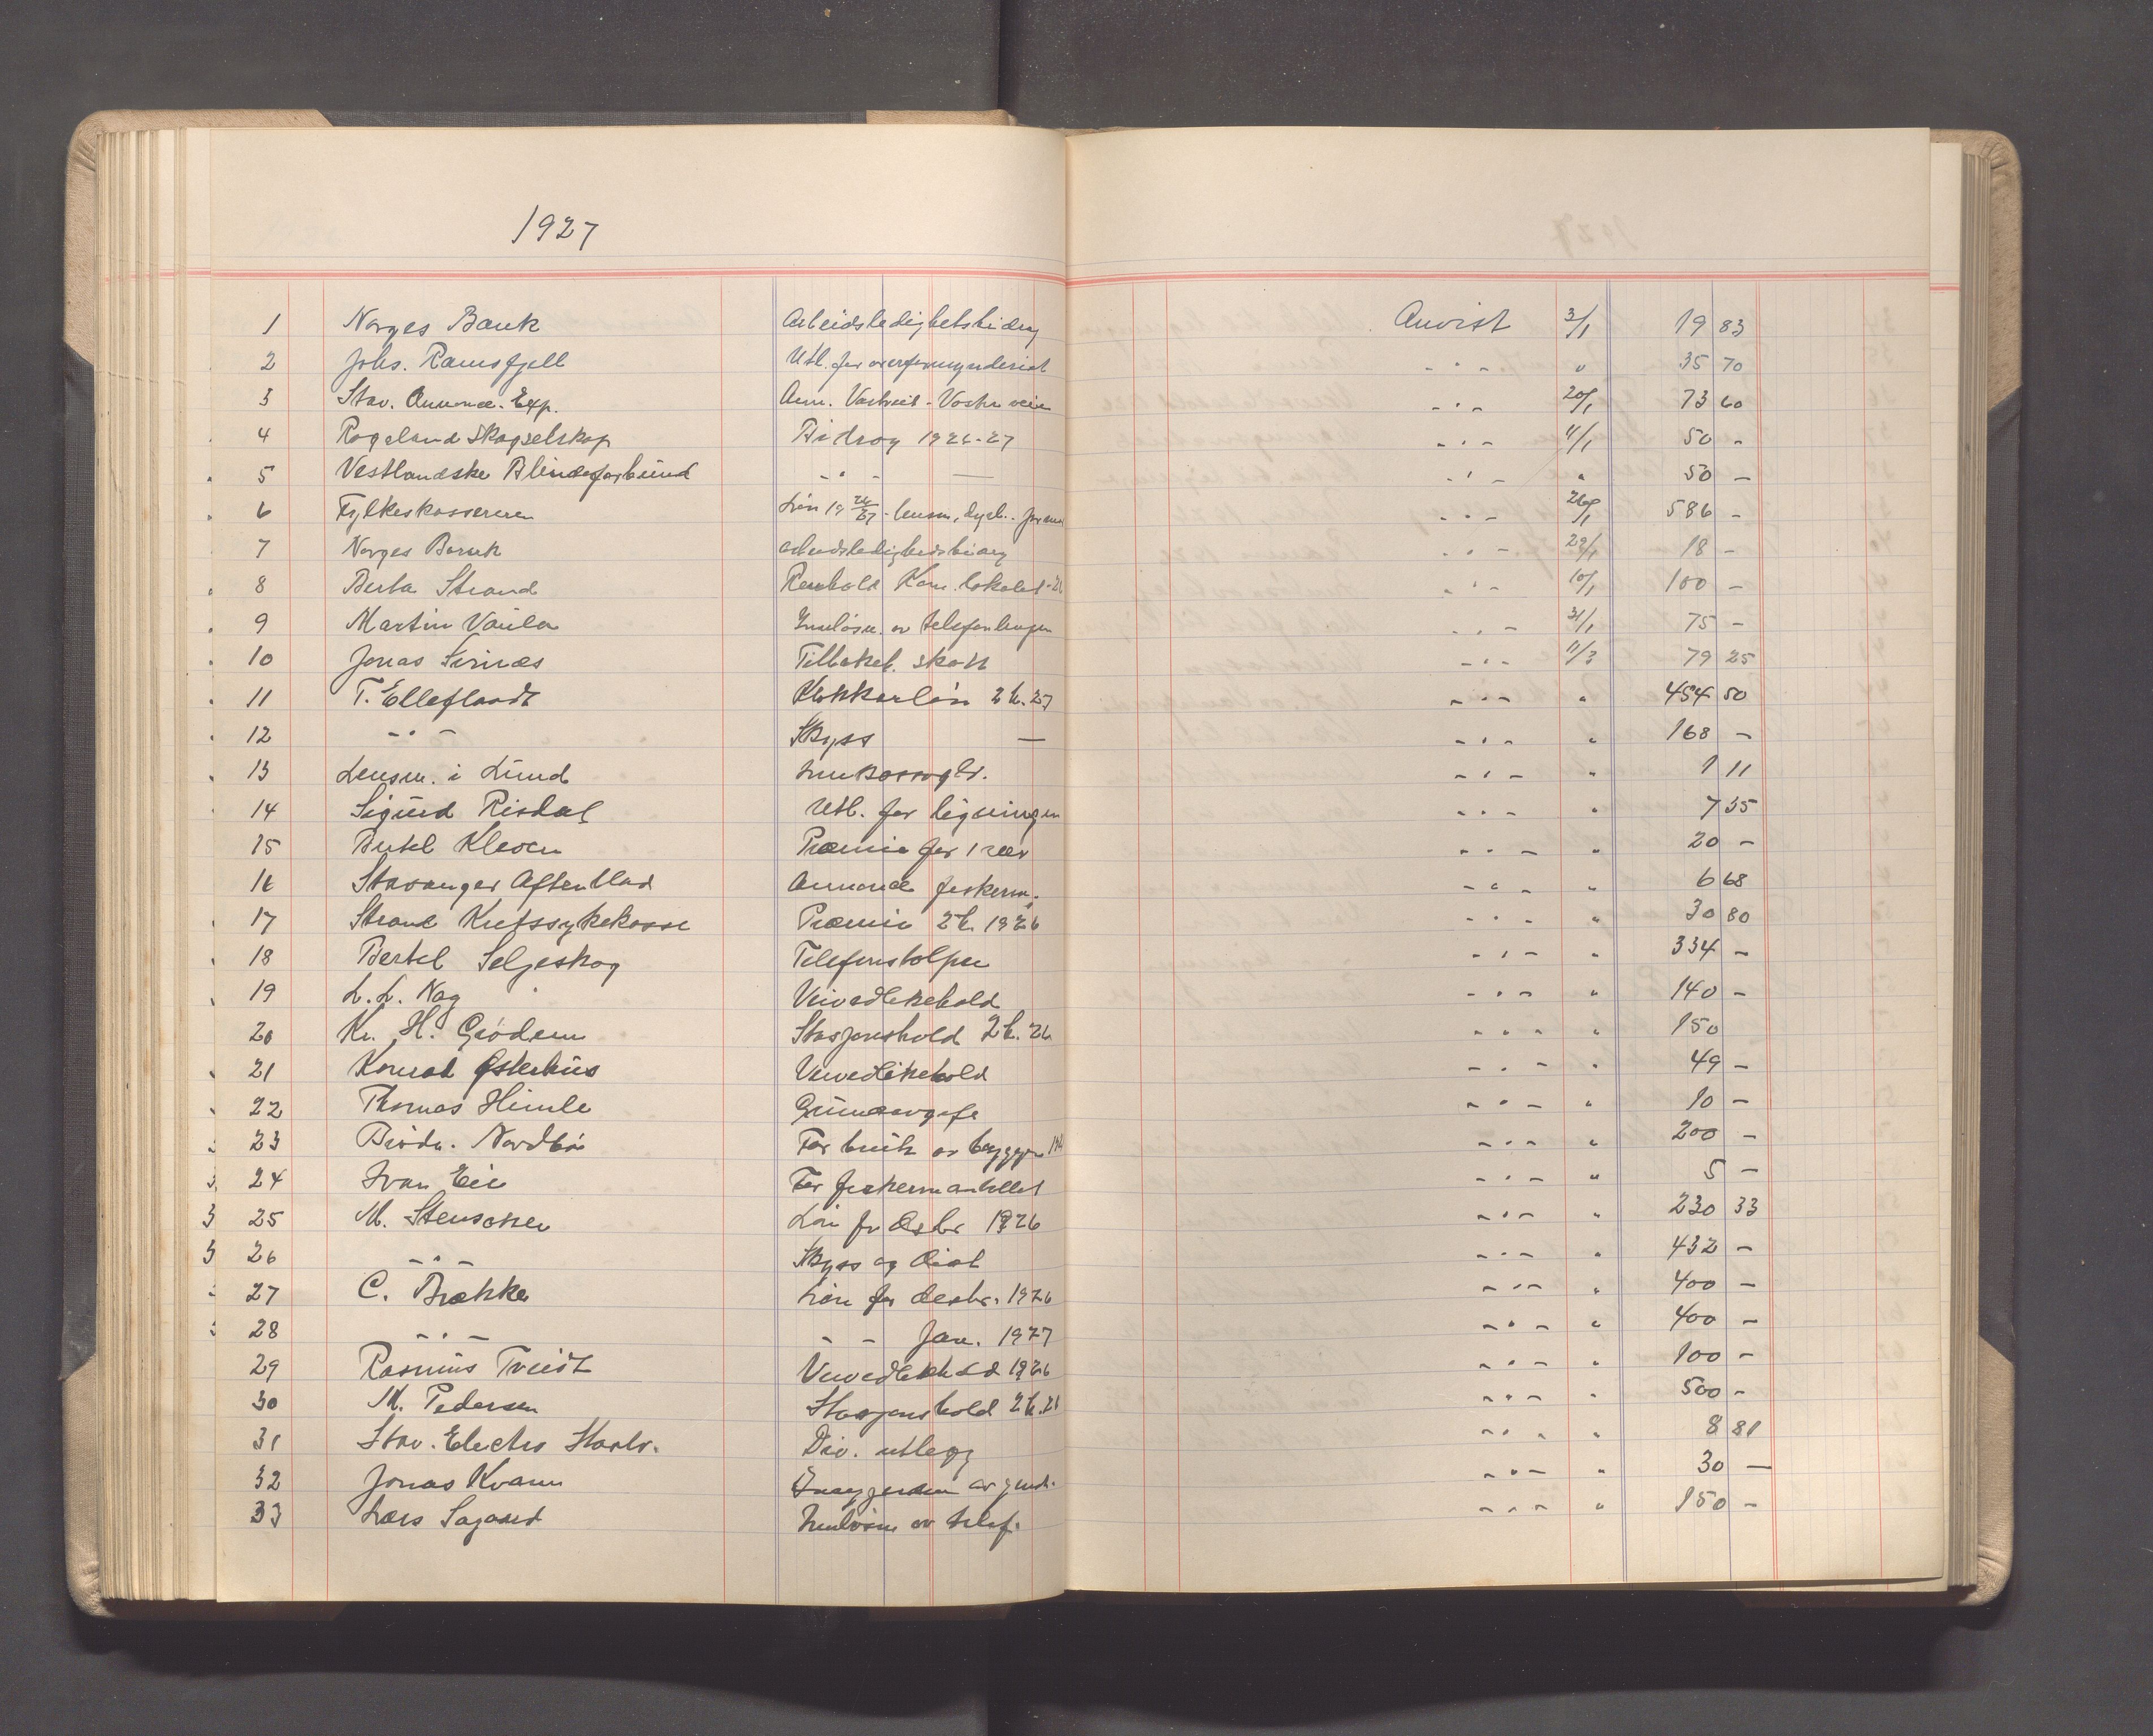 1927
1 Norges Bank Arbeidsledighetsbidrag Anvist 3/1 19 83
2 Johs. Ramsfjell Utl. for overformynderiet - " - " 35 70
3 Stav. Annonce. Exp. Ann. Vastveit - Vosterveien - " - 20/1 73 60
4 Rogaland Skogselskap Bidrag 1926-27 - " - 11/1 50 -
5 Vestlandske Blindeforbund - " - — - " - " 50 -
6 Fylkeskassereren Lön 19 26/27 - lensm, dyrl. - " - 26/1 586 -
7 Norges Bank Arbeidsledighedsbidrag - " - 29/1 18 -
8 Berta Strand Renhold Kom. lokalet - 26 - " - 10/1 100 -
9 Martin Vaula Innlösn. av telefonlinjen - " - 31/1 75 -
10 Jonas Tilbakeb. skatt - " - 11/3 79 25
11 T. Elleflaadt Klokkerlön 2 h. 27 - " - " 454 50
12 - " - Skyss — - " - " 168 -
13 Lensm. i Lund Innkassogb. - " - " 1 11
14 Sigurd Risdal Utl. for ligningen - " - " 7 35
15 Bertel Kleven Præmie for 1 rev - " - " 20 -
16 Stavanger Aftenblad Annonce feskerm. - " - " 6 68
17 Strand Kretssykekasse Præmie 2 h. 1926 - " - " 30 80
18 Bertel Seljeskog Telefonstolper - " - " 334 -
19 L. L. Nag Veivedlikehold - " - " 140 -
20 Kr. H. Grödem Stasjonshold 2 h. 26 - " - " 150
21 Konrad Østerhus Veivedlikehold - " - " 49 -
22 Thomas Himle Grunnavgift - " - " 10 -
23 Brödr. Nordbö For bruk av bryggen - " - " 200 -
24 Ivar Eie For feskermanntallet - " - " 5 -
25 M. Stensoken Lön for Desbr 1926 - " - " 230 33
26 - " - Skyss og Diet - " - " 432 -
27 C. Brække Lön for desbr. 1926 - " - " 400 -
28 - " - - - Jan. 1927 - " - " 400 -
29 Rasmus Tveidt Veivedlikehold 1926 - " - " 100 -
30 M. Pedersen Stasjonshold 2 h. 26 - " - " 500 -
31 Stav. Electro Staalv. Div. utlegg - " - " 8 81
32 Jonas Kvam Inngjerden av grunds. - " - " 30 —
33 Lars Sagaard Innlösn av telef. - " - " 150 -